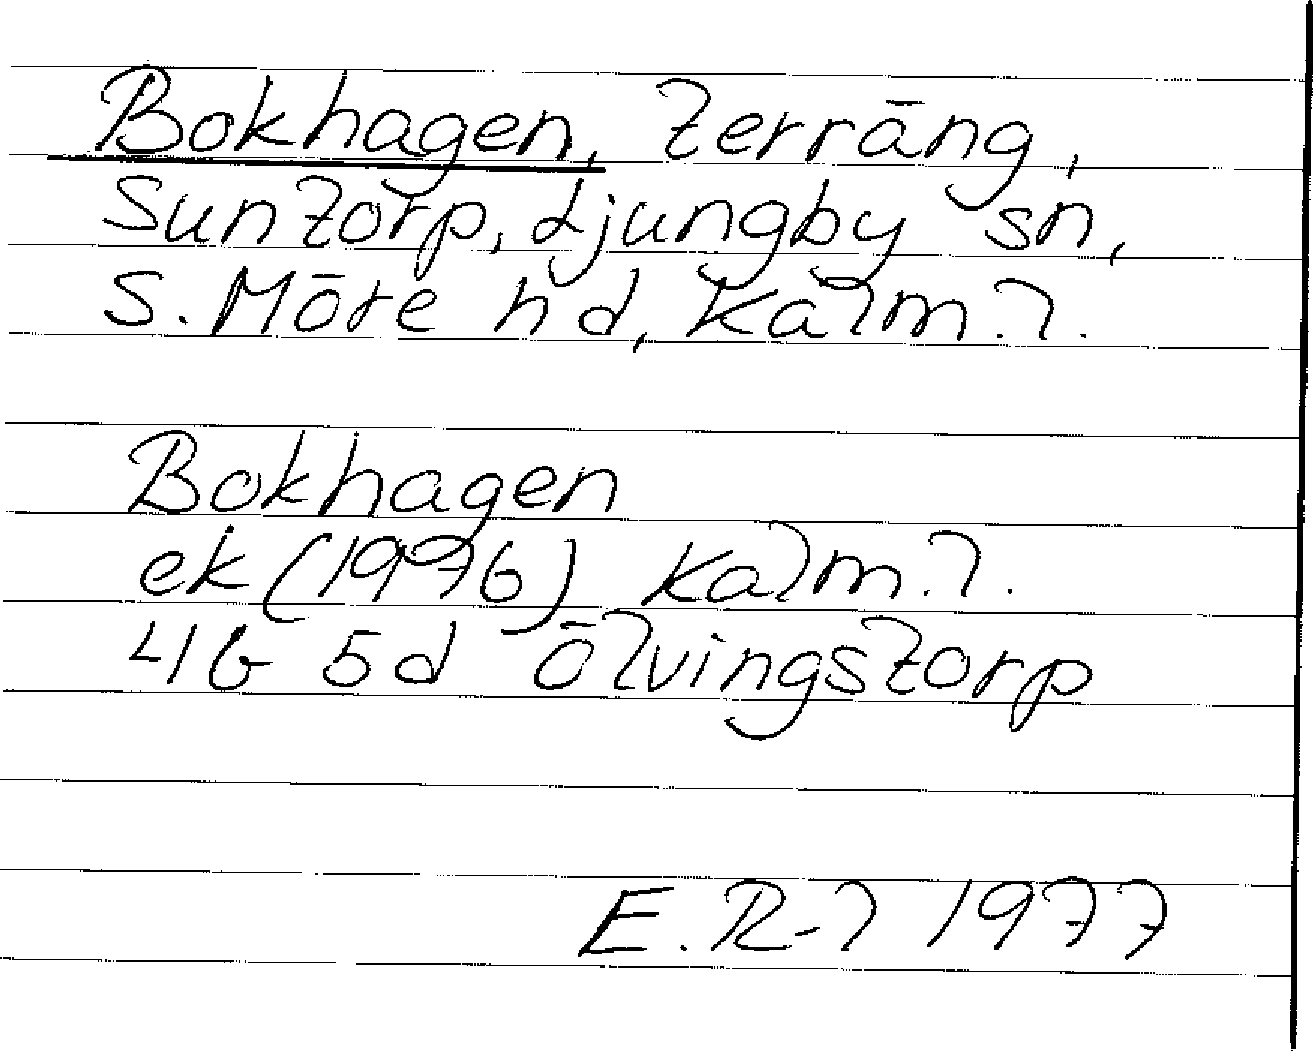 Bokhagen, terräng,
Suntorp, Ljungby sn,
S. Möre hd, Kalm. l.
Bokhagen
ek (1976) Kalm. l.
4G 5d Ölvingstorp
E. R-l 1977